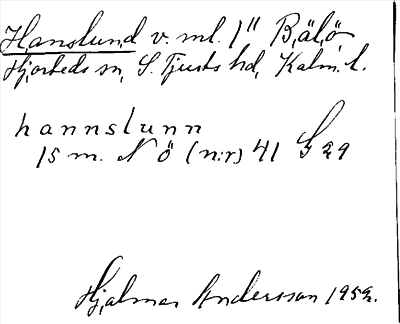 Hanslund v. ml. 1" Bälö,
Hjorteds sn, S. Tjusts hd, Kalm. l.
hannslunn
15 m. N ö (n:r) 41 G 29
Hjalmar Andersson 1952.